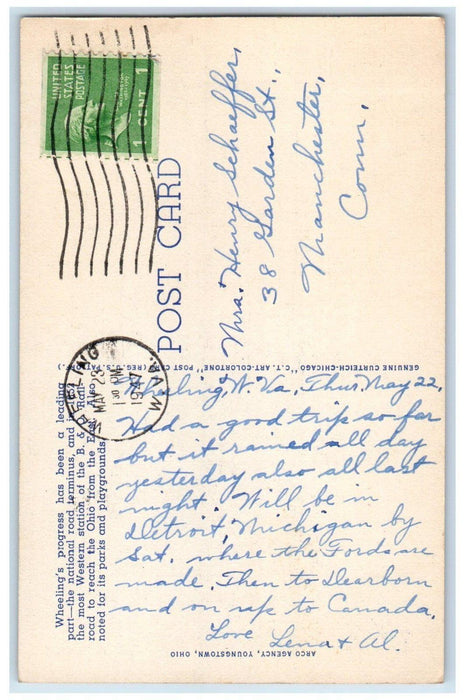 UNITED
STATES
POSTAGE
1 CENT 1
POST CARD
WHEELING
MAY 23
1 30 PM
1947
W.VA.
Mrs. Henry Schaeffer,
38 Garden St.,
Manchester,
Conn.
GENUINE CURTEICH-CHICAGO "C.T. ART-COLORTONE" POST CARD (REG. U.S. PAT. OFF.)
Wheeling's progress has been a leading
part—the national road terminus, and
the most Western station of the B. &
road to reach the Ohio from the East. Also
noted for its parks and playgrounds.
Wheeling, W. Va., Thur. May 22,
Had a good trip so far
but it rained all day
yesterday also all last
night. Will be in
Detroit, Michigan by
Sat. where the Fords are
made. Then to Dearborn
and on up to Canada.
Love Lena & Al.
ARCO AGENCY, YOUNGSTOWN, OHIO